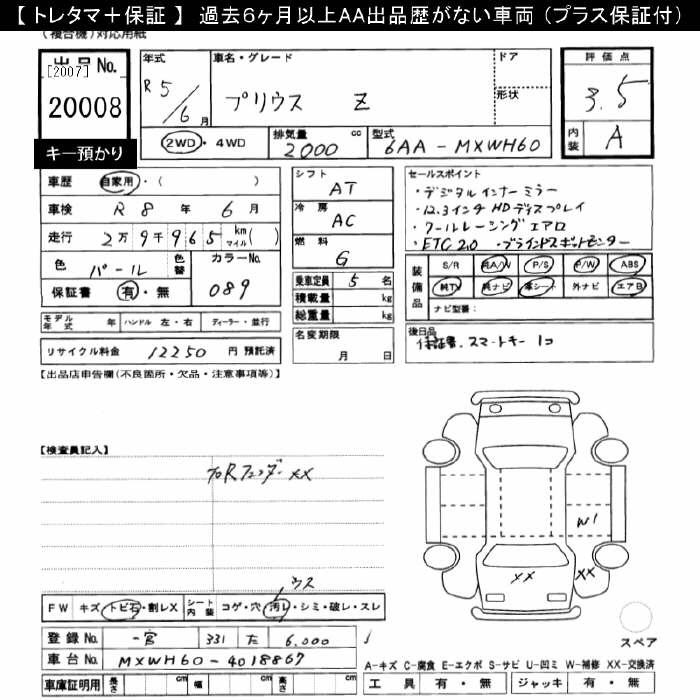 【 トレタマ＋保証 】 過去６ヶ月以上ＡＡ出品歴がない車両（プラス保証付）
(複合機)対応用紙
出品No.
[2007]
20008
キー預かり
年式
R5/6月
車名・グレード
プリウス Z
ドア
形状
評価点
3.5
内装 A
2WD・4WD
排気量 cc
2000
型式
6AA-MXWH60
車歴 自家用・( )
車検 R 8 年 6 月
走行 2万9千965 km マイル( )
色 パール 色替
カラーNo. 089
保証書 有・無
シフト AT
冷房 AC
燃料 G
乗車定員 5 名
積載量 kg
総重量 kg
セールスポイント
・デジタルインナーミラー
・12.3インチHDディスプレイ
・クールレーシングエアロ
・ETC2.0 ・ブラインドスポットモニター
装備品
S/R 純A/W P/S P/W ABS
純TV 純ナビ 革シート 外ナビ エアB
ナビ型番：
モデル年式 年 ハンドル 左・右 ディーラー・並行
リサイクル料金 12250 円 預託済
名変期限 月 日
後日品
保証書、スマートキー 1コ
【出品店申告欄(不良箇所・欠品・注意事項等)】
【検査員記入】
フロRフェンダー XX
ウス
FW キズ・トビ石・割レX シート内装 コゲ・穴・汚レ・シミ・破レ・スレ
W1
XX
XX
スペア
登録No. 一宮 331 た 6,000
車台No. MXWH60-4018867
車庫証明用 長さ cm 幅 cm 高さ cm
A-キズ C-腐食 E-エクボ S-サビ U-凹ミ W-補修 XX-交換済
工具 有・無 ジャッキ 有・無